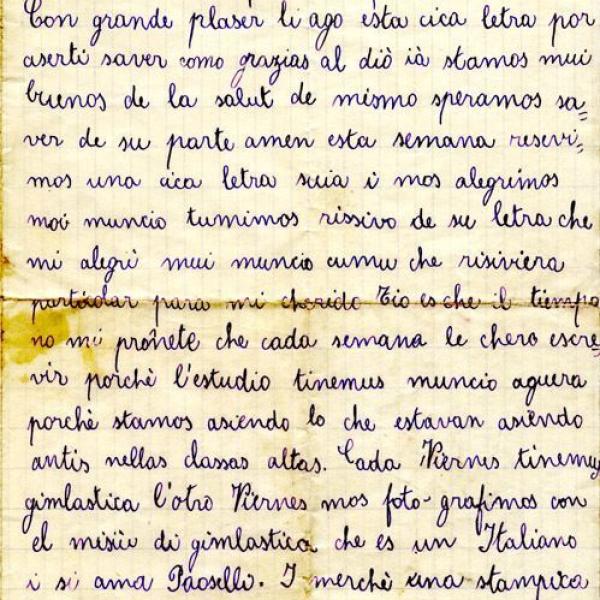 Con grande plaser li ago ésta cica letra por
aserti saver como grazias al diò ià stamos mui
buenos de la salut de mismo speramos sa=
ver de su parte amen esta semana resevi=
mos una cica letra suia i mos alegrimos
moi muncio tumimos rissivo de su letra che
mi alegrì mui muncio cumu che risiviera
particolar para mi cherido Tio es che il tiempo
no mi promete che cada semana le chero escre=
vir porchè l'estudio tinemus muncio aguera
porchè stamos asiendo lo che estavan asiendo
antis nellas classas altas. Cada Viernis tinemus
gimlastica l'otro Viernes mos foto-grafimos con
el misiù di gimlastica che es un Italiano
i si ama Paoselli. I merchè una stampica